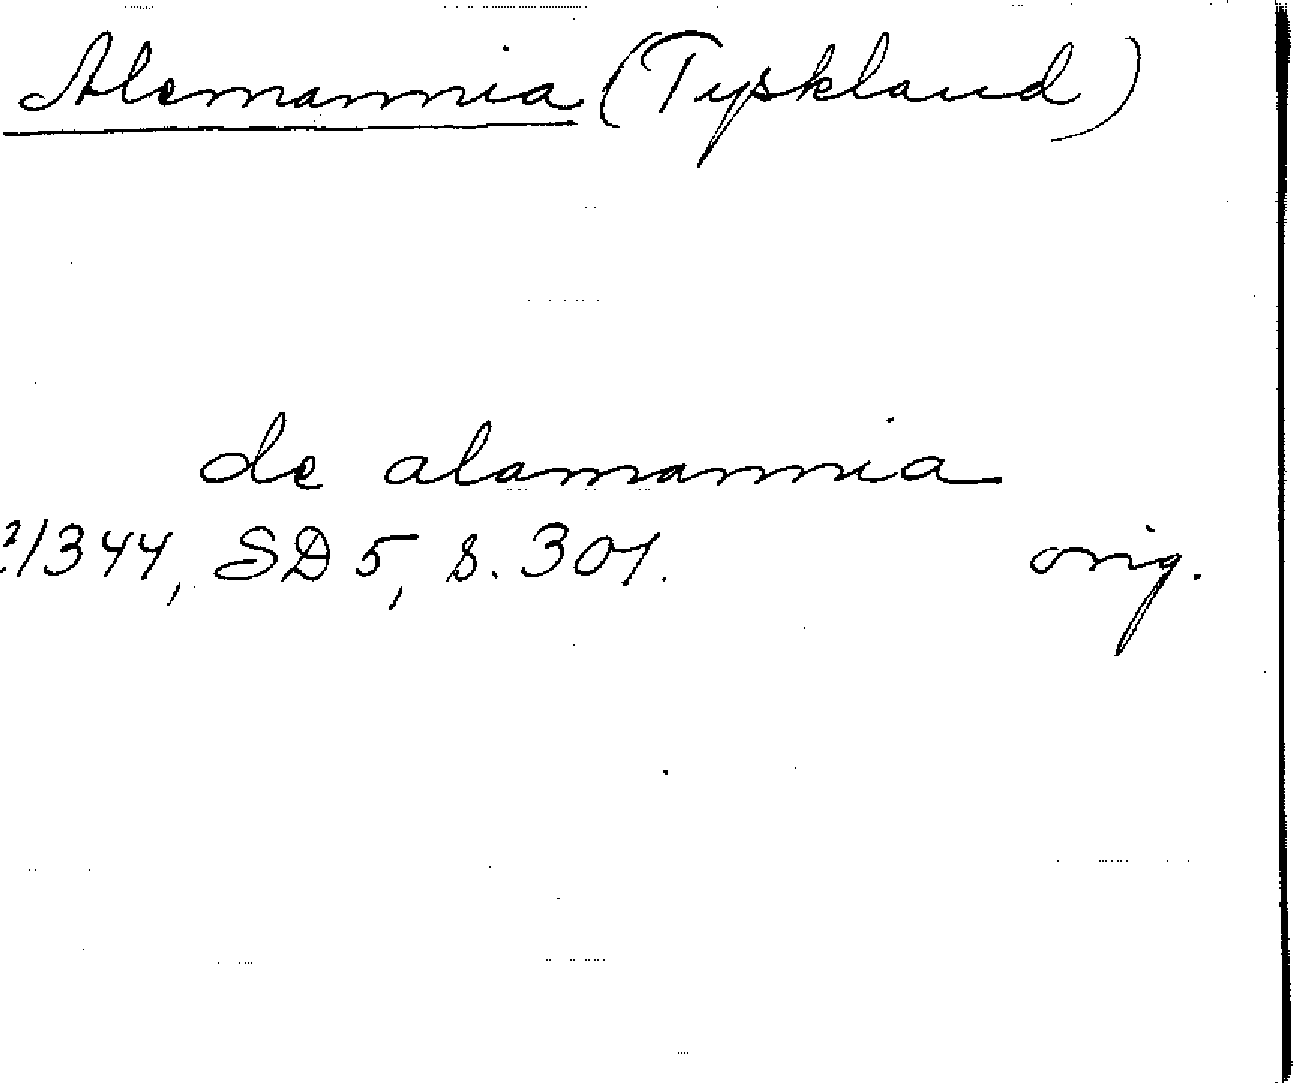 Alemannia (Tyskland)
de alamannia
1344, SD 5, s. 301. orig.